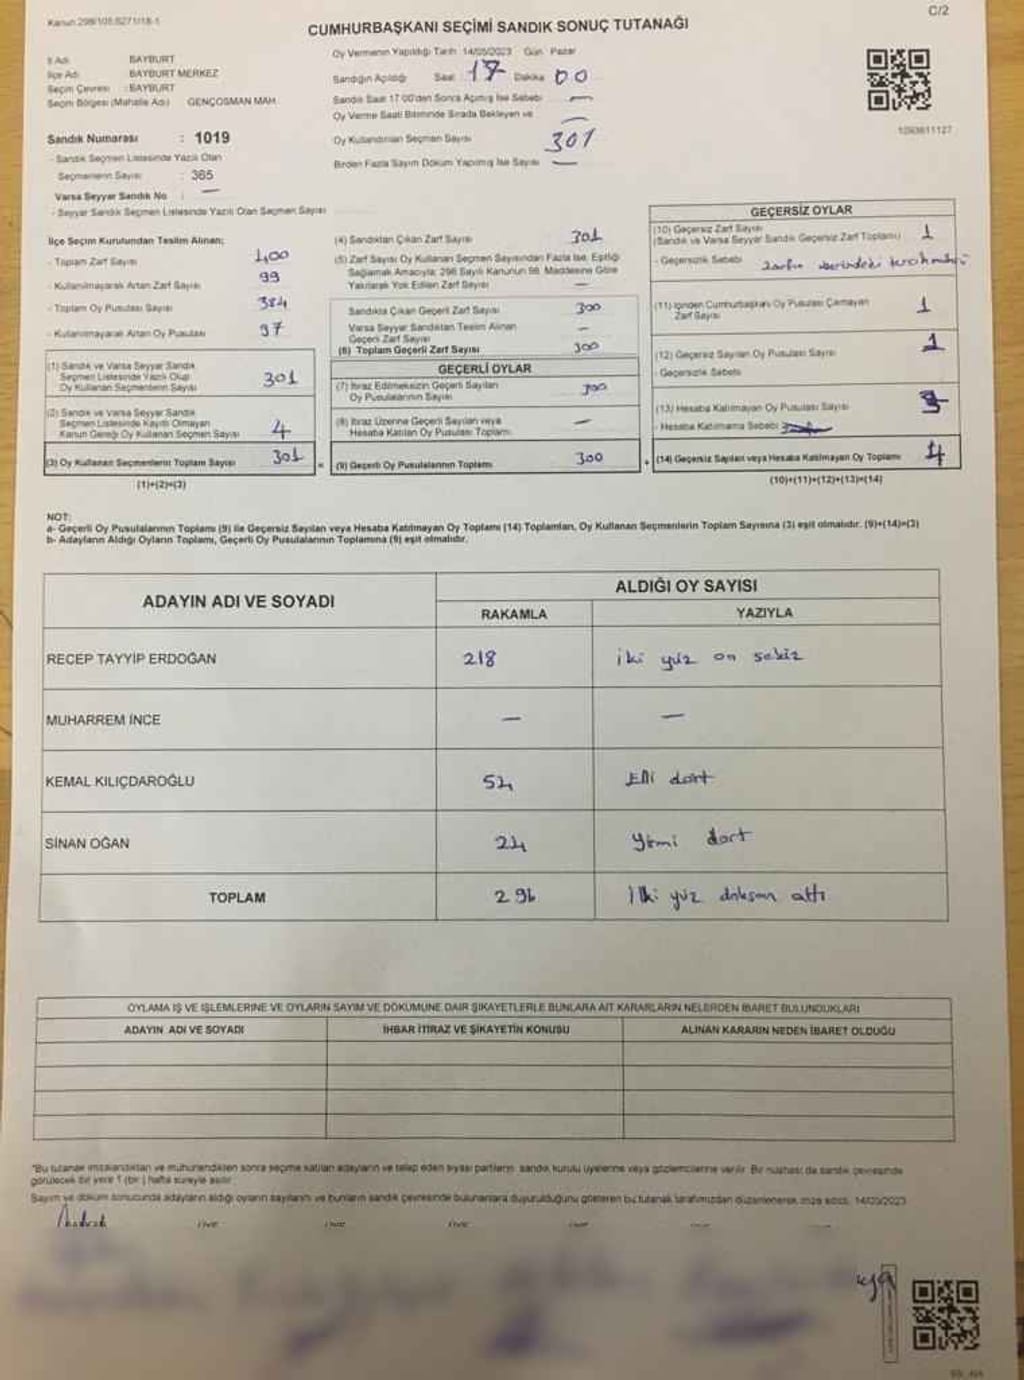 Kanun 298/105,6271/18-1
C/2
CUMHURBAŞKANI SEÇİMİ SANDIK SONUÇ TUTANAĞI
İl Adı BAYBURT
İlçe Adı BAYBURT MERKEZ
Seçim Çevresi : BAYBURT
Seçim Bölgesi (Mahalle Adı) GENÇOSMAN MAH.
Oy Vermenin Yapıldığı Tarih 14/05/2023 Gün Pazar
Sandığın Açıldığı Saat 17 Dakika 00
Sandık Saat 17:00'den Sonra Açılmış İse Sebebi —
Oy Verme Saati Bitiminde Sırada Bekleyen ve —
Oy Kullandırılan Seçmen Sayısı 301
Birden Fazla Sayım Döküm Yapılmış İse Sayısı —
Sandık Numarası : 1019
- Sandık Seçmen Listesinde Yazılı Olan
Seçmenlerin Sayısı : 365
Varsa Seyyar Sandık No : —
- Seyyar Sandık Seçmen Listesinde Yazılı Olan Seçmen Sayısı
İlçe Seçim Kurulundan Teslim Alınan;
- Toplam Zarf Sayısı 400
- Kullanılmayarak Artan Zarf Sayısı 99
- Toplam Oy Pusulası Sayısı 384
- Kullanılmayarak Artan Oy Pusulası 97
(1) Sandık ve Varsa Seyyar Sandık
Seçmen Listesinde Yazılı Olup
Oy Kullanan Seçmenlerin Sayısı 301
(2) Sandık ve Varsa Seyyar Sandık
Seçmen Listesinde Kayıtlı Olmayan
Kanun Gereği Oy Kullanan Seçmen Sayısı 4
(3) Oy Kullanan Seçmenlerin Toplam Sayısı 301
(1)+(2)=(3)
(4) Sandıktan Çıkan Zarf Sayısı 301
(5) Zarf Sayısı Oy Kullanan Seçmen Sayısından Fazla İse, Eşitliği
Sağlamak Amacıyla; 298 Sayılı Kanunun 98. Maddesine Göre
Yakılarak Yok Edilen Zarf Sayısı —
Sandıkta Çıkan Geçerli Zarf Sayısı 300
Varsa Seyyar Sandıktan Teslim Alınan
Geçerli Zarf Sayısı —
(6) Toplam Geçerli Zarf Sayısı 300
GEÇERLİ OYLAR
(7) İtiraz Edilmeksizin Geçerli Sayılan
Oy Pusulalarının Sayısı 300
(8) İtiraz Üzerine Geçerli Sayılan veya
Hesaba Katılan Oy Pusulası Toplamı —
= (9) Geçerli Oy Pusulalarının Toplamı 300
GEÇERSİZ OYLAR
(10) Geçersiz Zarf Sayısı
(Sandık ve Varsa Seyyar Sandık Geçersiz Zarf Toplamı) 1
- Geçersizlik Sebebi zarfın üzerindeki
(11) İçinden Cumhurbaşkanı Oy Pusulası Çıkmayan
Zarf Sayısı 1
(12) Geçersiz Sayılan Oy Pusulası Sayısı 1
- Geçersizlik Sebebi
(13) Hesaba Katılmayan Oy Pusulası Sayısı
- Hesaba Katılmama Sebebi
+ (14) Geçersiz Sayılan veya Hesaba Katılmayan Oy Toplamı 4
(10)+(11)+(12)+(13)=(14)
NOT:
a- Geçerli Oy Pusulalarının Toplamı (9) ile Geçersiz Sayılan veya Hesaba Katılmayan Oy Toplamı (14) Toplamları, Oy Kullanan Seçmenlerin Toplam Sayısına (3) eşit olmalıdır. (9)+(14)=(3)
b- Adayların Aldığı Oyların Toplamı, Geçerli Oy Pusulalarının Toplamına (9) eşit olmalıdır.
ADAYIN ADI VE SOYADI ALDIĞI OY SAYISI
RAKAMLA YAZIYLA
RECEP TAYYİP ERDOĞAN 218 iki yüz on sekiz
MUHARREM İNCE — —
KEMAL KILIÇDAROĞLU 54 Elli dört
SİNAN OĞAN 24 Yirmi dört
TOPLAM 296 İki yüz doksan altı
OYLAMA İŞ VE İŞLEMLERİNE VE OYLARIN SAYIM VE DÖKÜMÜNE DAİR ŞİKAYETLERLE BUNLARA AİT KARARLARIN NELERDEN İBARET BULUNDUKLARI
ADAYIN ADI VE SOYADI İHBAR İTİRAZ VE ŞİKAYETİN KONUSU ALINAN KARARIN NEDEN İBARET OLDUĞU
"Bu tutanak imzalandıktan ve mühürlendikten sonra seçime katılan adayların ve talep eden siyasi partilerin sandık kurulu üyelerine veya gözlemcilerine verilir. Bir nüshası da sandık çevresinde
görülecek bir yere 1 (bir) hafta süreyle asılır
Sayım ve döküm sonucunda adayların aldığı oyların sayılarını ve bunların sandık çevresinde bulunanlara duyurulduğunu gösteren bu tutanak tarafımızdan düzenlenerek imza edildi. 14/05/2023